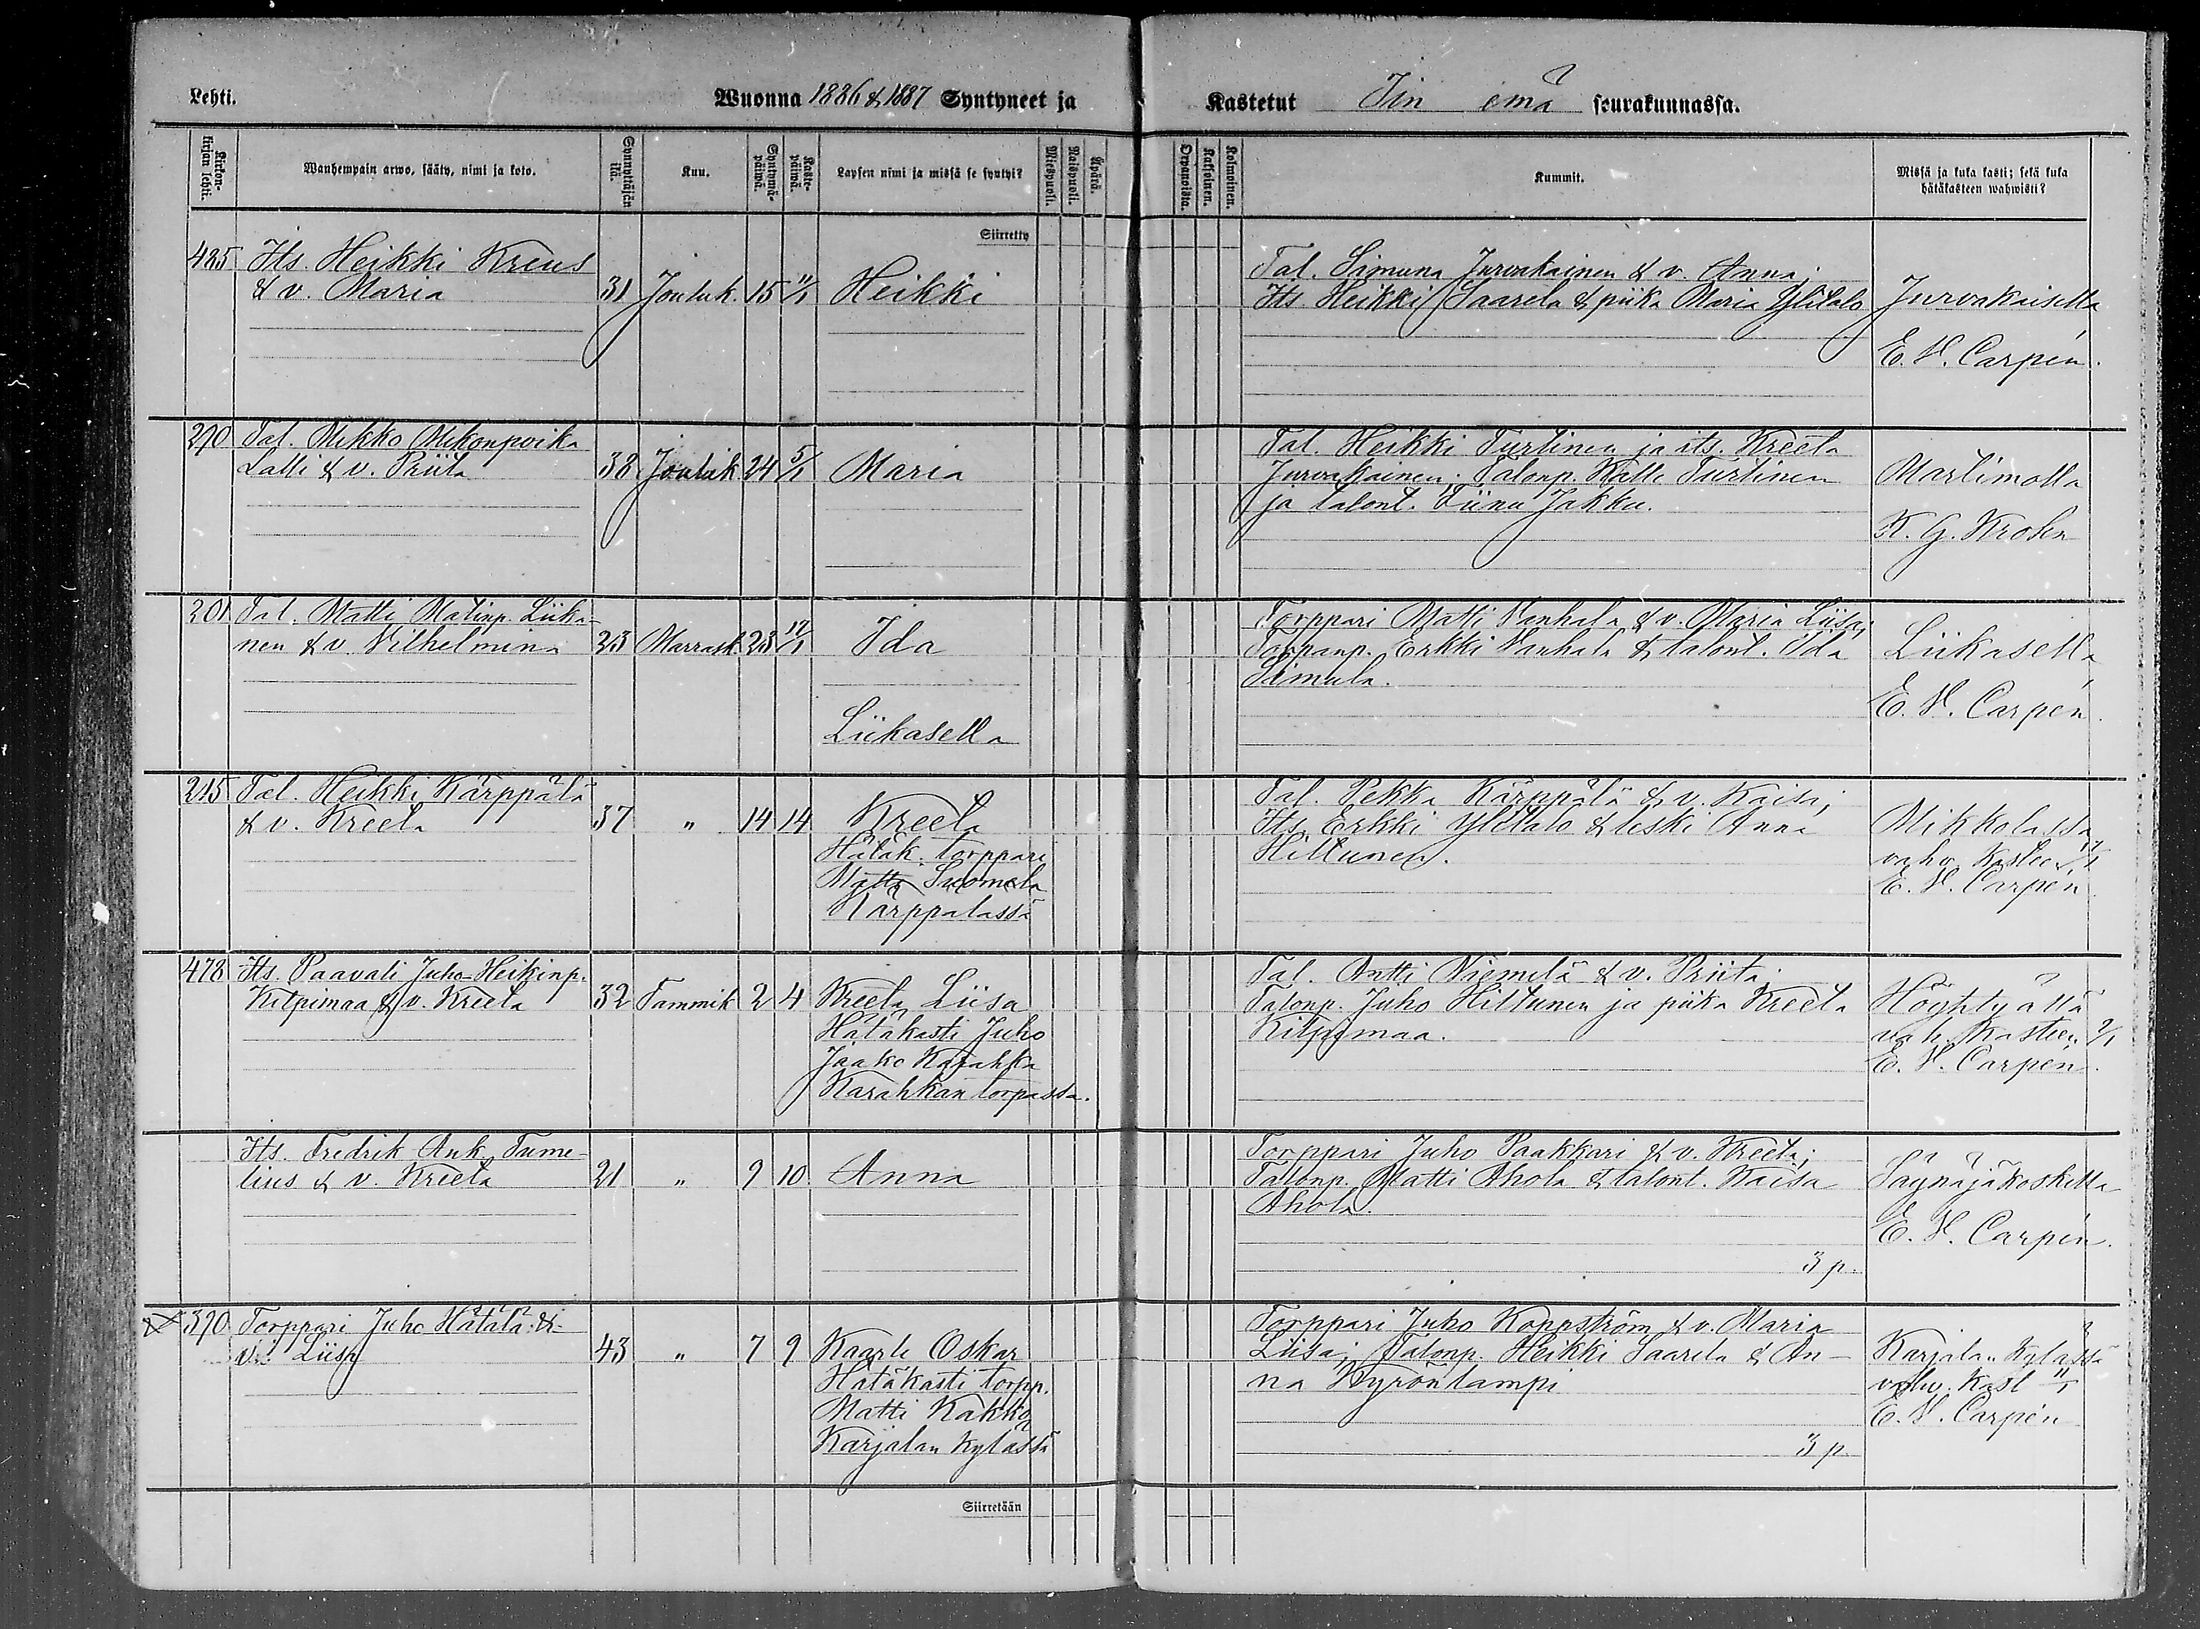 Lehti.
Wuonna 1886 & 1887 Syntyneet ja
Kastetut Iin emä seurakunnassa.
Kirkonkirjan lehti.
Wanhempain arwo, sääty, nimi ja koto.
Synnyttäjän ikä.
Kuu.
Syntymäpäiwä.
Kastepäiwä.
Lapsen nimi ja missä se syntyi?
Miespuoli.
Naispuoli.
Äpärä.
Orpanoista.
Kaksoinen.
Kolmoinen.
Kummit.
Missä ja kuka kasti; sekä kuka
hätäkasteen wahwisti?
Siirretty
485 Its. Heikki Kreus
& v. Maria 31 Jouluk. 15 11/1 Heikki
Tal. Simuna Jurvakainen & v. Anna;
Its. Heikki Saarela & piika Maria Ylitalo
Jurvakaisella
E. V. Carpén.
290 Tal. Mikko Mikonpoika
Latti & v. Priita 38 Jouluk 24 5/1 Maria
Tal. Heikki Turtinen ja its. Kreeta
Jurvakainen; Talonp. Kalle Turtinen
ja talont. Liina Jakku.
Martimolla
K. G. Krohn
201 Tal. Matti Matinp. Liika-
nen & v. Vilhelmina 23 Marrask. 23 12/1 Ida
Liikasella
Torppari Matti Vanhala & v. Maria Liisa;
Torpanp. Erkki Vanhala & talont. Ida
Simula.
Liikasella
E. V. Carpén.
245 Tal. Heikki Kärppälä
& v. Kreeta 37 " 14 14 Kreeta
Hätäk. torppari
Matti Suomela
Kärppälässä
Tal. Pekka Kärppälä & v. Kaisa;
Its. Erkki Ylitalo & leski Anna
Hiltunen.
Mikkolassa
vahv. Kasteen
E. V. Carpén
478 Its. Paavali Juho Heikinp.
Kilpimaa & v. Kreeta 32 Tammik 2 4 Kreeta Liisa
Hätäkasti Juho
Jaako Karahka
Karahkan torpassa.
Tal. Antti Niemelä & v. Priita;
Talonp. Juho Hiltunen ja piika Kreeta
Kilpimaa.
Höyhtyällä
vah. Kasteen 9/1
E. V. Carpén.
Its. Fredrik Ank Tume-
lius & v. Kreeta 21 " 9 10 Anna
Torppari Juho Paakkari & v. Kreeta;
Talonp. Matti Ahola & talont. Kaisa
Ahola.
3 p.
Säynäjäkoskella
E. V. Carpén.
390 Torppari Juho Hätälä &
v. Liisa 43 " 7 9 Kaarle Oskar
Hätäkasti torpp.
Matti Kakko
Karjalan kylässä
Torppari Juho Koppström & v. Maria
Liisa; Talonp. Heikki Saarela & An-
na Hyröntampi
3 p.
Karjalan kylässä
vahv. Kast 11/1
E. V. Carpén
Siirretään